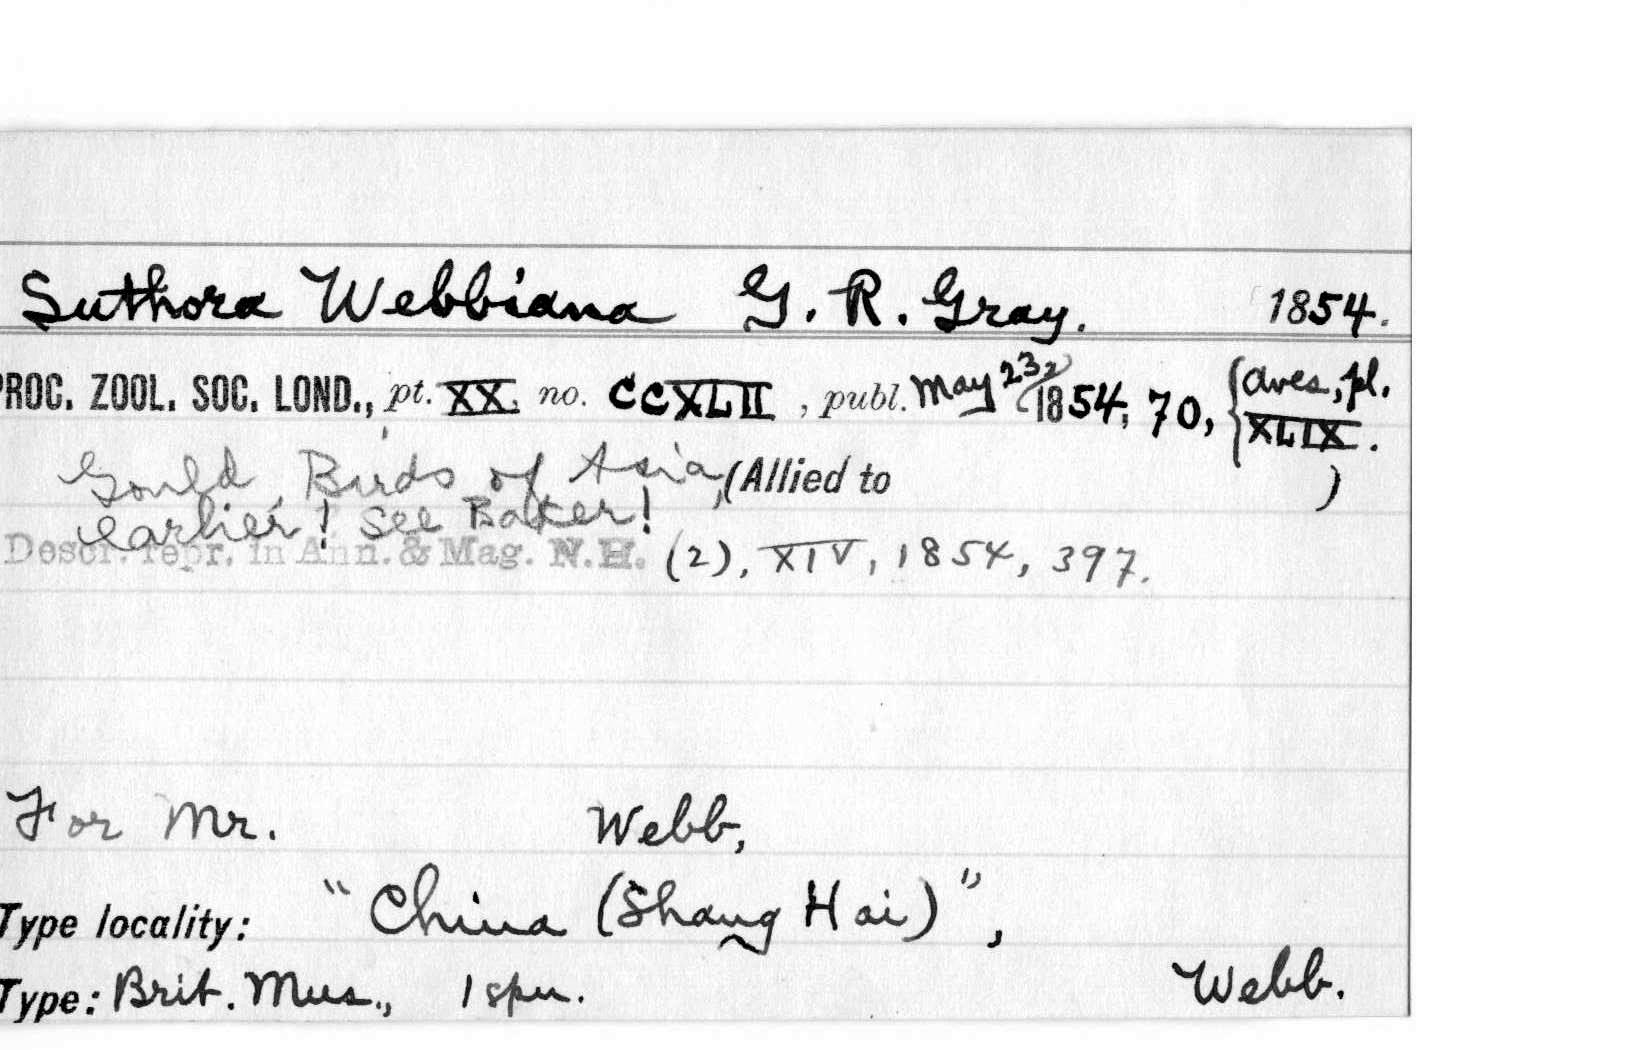 Suthora Webbiana G. R. Gray. 1854.
PROC. ZOOL. SOC. LOND., pt. XX, no. CCXLII, publ. May 23, 1854, 70, {Aves, pl. XLIX.
Gould, Birds of Asia, (Allied to )
earlier! See Baker!
Descr. repr. in Ann. & Mag. N.H. (2), XIV, 1854, 397.
For Mr. Webb,
Type locality: "China (Shang Hai)",
Type: Brit. Mus., 1 spm. Webb.